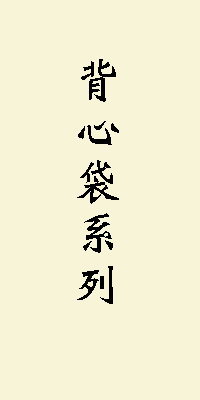 背心袋系列